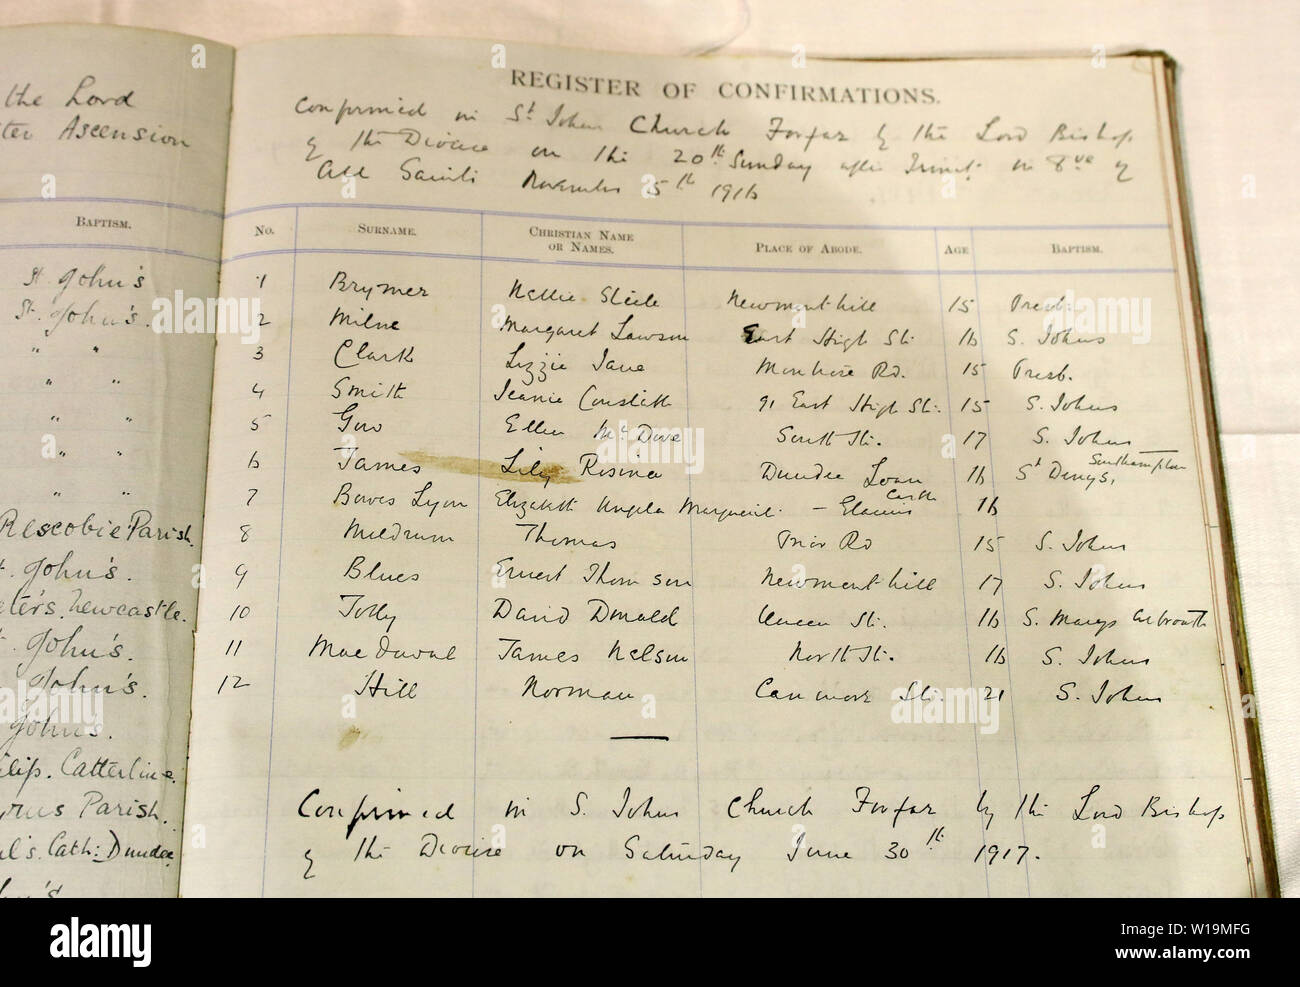 the Lord
Ascension
BAPTISM.
St. John's
St. John's.
" "
" "
" "
" "
" "
Rescobie Parish.
John's.
Newcastle.
John's.
John's.
John's.
Catterline.
Parish.
Cath: Dundee
REGISTER OF CONFIRMATIONS.
Confirmed in St. Johns Church Forfar by the Lord Bishop
of the Diocese on the 20th Sunday after Trinity in 8ve of
All Saints November 5th 1916
No. SURNAME. CHRISTIAN NAME OR NAMES. PLACE OF ABODE. AGE BAPTISM.
1 Brymer Nellie Steele Newmonthill 15 Presb.
2 Milne Margaret Lawson East High St. 16 S. Johns
3 Clark Lizzie Jane Montrose Rd. 15 Presb.
4 Smith Jeanie 91 East High St. 15 S. Johns
5 Gow Ellen South St. 17 S. Johns
6 James Lily Rosina Dundee Loan 16 St Denys, Southampton
7 Bowes Lyon Elizabeth Angela Marguerite. - Glamis Castle 16
8 Meldrum Thomas Prior Rd 15 S. Johns
9 Blues Ernest Thomson Newmonthill 17 S. Johns
10 Jolly David Donald Queen St. 16 S. Marys Arbroath
11 MacDuval James Nelson North St. 16 S. Johns
12 Hill Norman Canmore St. 21 S. Johns
Confirmed in S. Johns Church Forfar by the Lord Bishop
of the Diocese on Saturday June 30th 1917.
alamy
Image ID: W19MFG
www.alamy.com